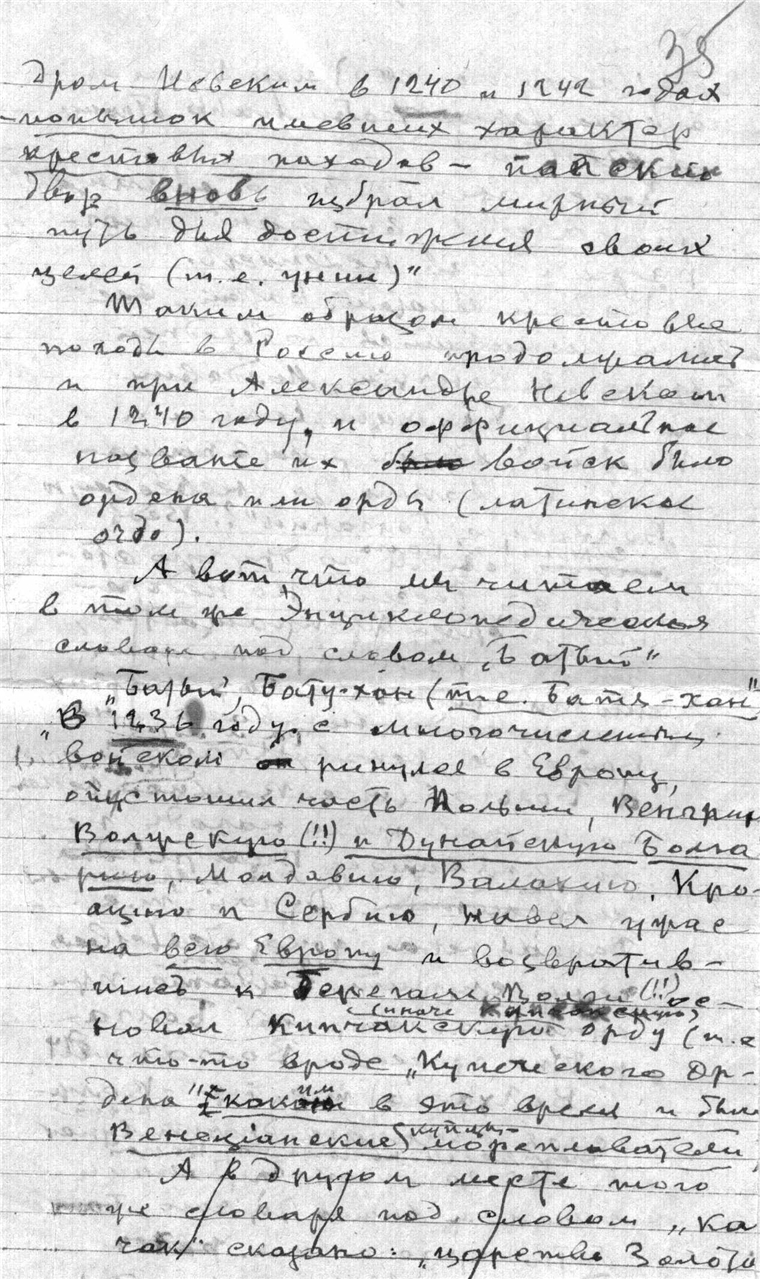 35
дром Невским в 1240 и 1242 годах
попыток имевших характер
крестовых походов – папский
двор вновь избрал мирный
путь для достижения своих
целей (т.е. унии)"
Таким образом крестовые
походы в Россию продолжались
и при Александре Невском
в 1240 году, и оффициальное
название их войск было
ордена или орды (латинское
ordo).
А вот что мы читаем
в том же Энциклопедическом
словаре под словом „Батый"
„Батый, Бату-хан (т.е. Батя-хан"
„В 1236 году с многочисленным
войском ринулся в Европу,
опустошил часть Польши, Венгрии
Волжскую (!!) и Дунайскую Болга
рию, Молдавию, Валахию, Кро-
ацию и Сербию, навел ужас
на всю Европу и возвратив-
шись к берегам Волги (!!) ос-
(иначе
новал Кипчакскую орду (т.е
что-то вроде „Купеческого Ор-
дена" каким в это время и были
Венецианские купцы-мореплаватели
А в другом месте того
же словаря под словом „Ка
чак" сказано: „царство Золото